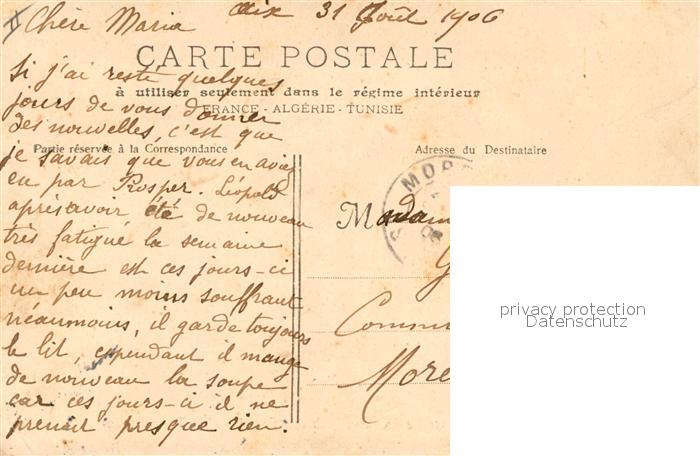 Chère Maria Aix 31 Août 1906
CARTE POSTALE
à utiliser seulement dans le régime intérieur
FRANCE - ALGÉRIE - TUNISIE
Partie réservée à la Correspondance
Adresse du Destinataire
Si j'ai resté quelques
jours de vous donner
des nouvelles, c'est que
je savais que vous en aviez
eu par Rosper. Léopold
après avoir été de nouveau
très fatigué la semaine
dernière est ces jours-ci
un peu moins souffrant
néaumoins, il garde toujours
le lit, cependant il mange
de nouveau la soupe
car ces jours-ci il ne
prenait presque rien.
MOR
Madam
Comm
More
privacy protection
Datenschutz